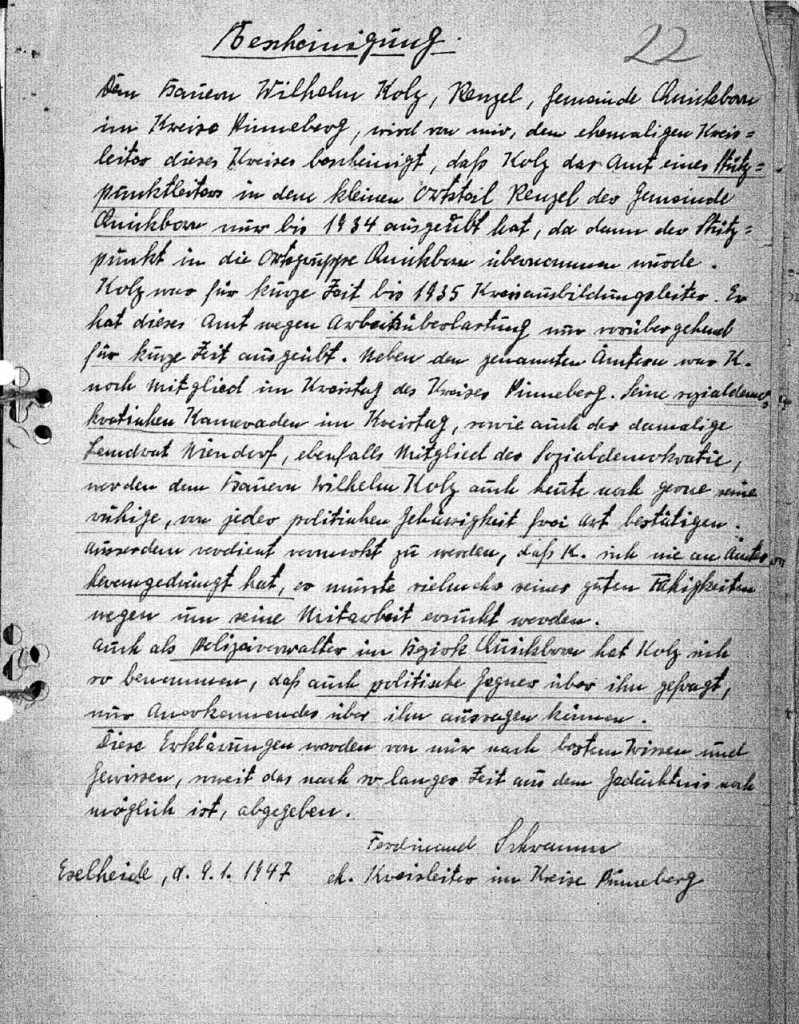 Bescheinigung.
22
Dem Bauern Wilhelm Kolz, Renzel, Gemeinde Quickborn
im Kreise Pinneberg, wird von mir, dem ehemaligen Kreis=
leiter dieses Kreises bescheinigt, daß Kolz das Amt eines Stütz=
punktleiters in dem kleinen Ortsteil Renzel der Gemeinde
Quickborn nur bis 1934 ausgeübt hat, da dann der Stütz=
punkt in die Ortsgruppe Quickborn übernommen wurde.
Kolz war für kurze Zeit bis 1935 Kreisausbildungsleiter. Er
hat dieses Amt wegen Arbeitsüberlastung nur vorübergehend
für kurze Zeit ausgeübt. Neben den genannten Ämtern war K.
noch Mitglied im Kreistag des Kreises Pinneberg. Seine sozialdemo
kratischen Kameraden im Kreistag, sowie auch der damalige
Landrat Niendorf, ebenfalls Mitglied der Sozialdemokratie,
werden dem Bauern Wilhelm Kolz auch heute noch gerne seine
ruhige, von jeder politischen Gehässigkeit frei Art bestätigen.
Ausserdem verdient vermerkt zu werden, daß K. sich nie an Ämter
herangedrängt hat, er musste vielmehr seiner guten Fähigkeiten
wegen um seine Mitarbeit ersucht werden.
Auch als Polizeiverwalter im Bezirk Quickborn hat Kolz sich
so benommen, daß auch politische Gegner über ihn gefragt,
nur Anerkennendes über ihn aussagen können.
Diese Erklärungen werden von mir nach bestem Wissen und
Gewissen, soweit das nach so langer Zeit aus dem Gedächtnis noch
möglich ist, abgegeben.
Ferdinand Schramm
Eselheide, d. 9.1.1947 eh. Kreisleiter im Kreise Pinneberg